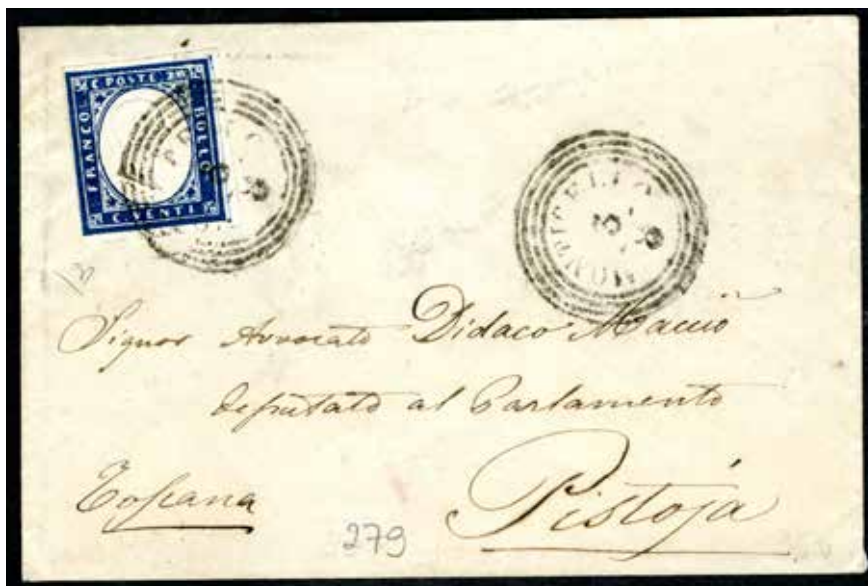 C. POSTE 20
FRANCO
BOLLO
C. VENTI
MONTICELLO
Signor Avvocato Didaco Macciò
deputato al Parlamento
Toscana
Pistoja
279